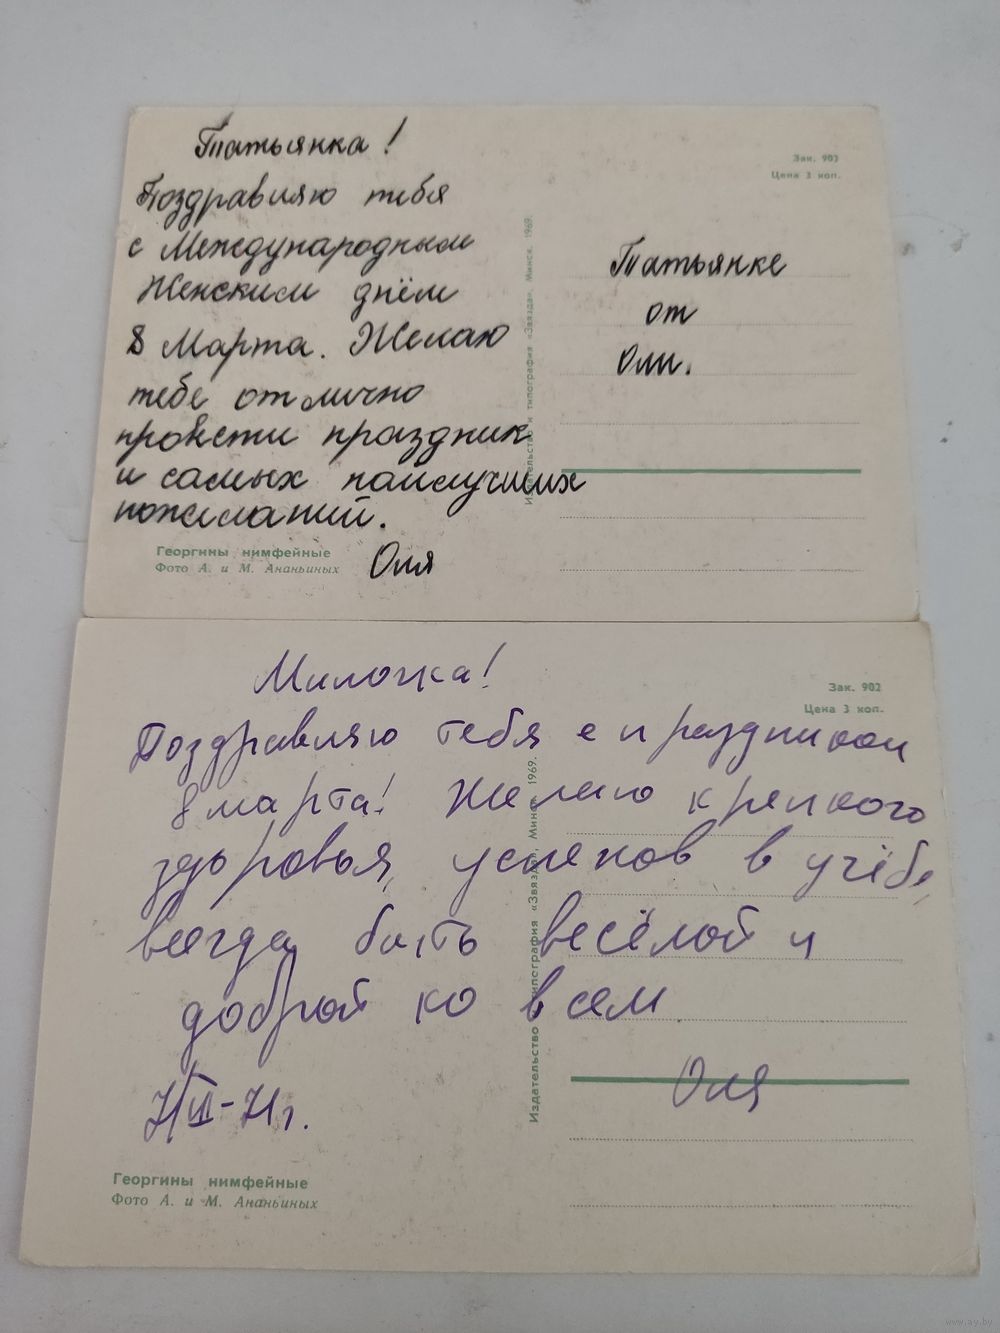 Татьянка!
Поздравляю тебя
с Международным
Женским днём
8 Марта. Желаю
тебе отлично
провести праздник
и самых наилучших
пожеланий.
Оля
Георгины нимфейные
Фото А. и М. Ананьиных
Издательство и типография «Звязда», Минск. 1969.
Зак. 903
Цена 3 коп.
Татьянке
от
Оли.
Милочка!
Поздравляю тебя с праздником
8 марта! Желаю крепкого
здоровья, успехов в учёбе,
всегда быть весёлой и
доброй ко всем
Оля
Георгины нимфейные
Фото А. и М. Ананьиных
Издательство и типография «Звязда», Минск. 1969.
Зак. 902
Цена 3 коп.
www.ay.by